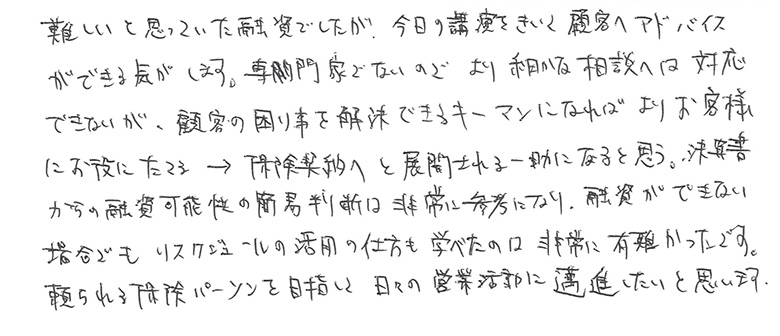 難しいと思っていた融資でしたが、今日の講演をきいて顧客へアドバイス
ができる気がします。専門家でないので より細かな相談へは対応
できないが、顧客の困り事を解決できるキーマンになれば よりお客様
にお役にたてる → 保険契約へと展開される一助になると思う。決算書
からの融資可能性の簡易判断は非常に参考になり、融資ができない
場合でも リスケジュールの活用の仕方も学べたのは非常に有難かったです。
頼られる保険パーソンを目指して 日々の営業活動に邁進したいと思います。